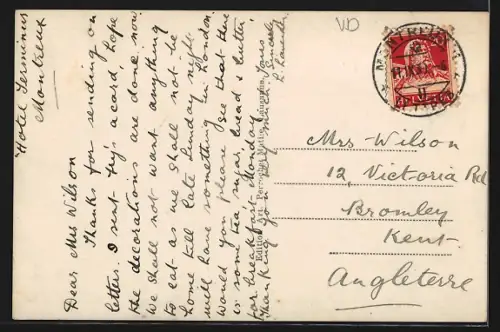 Hotel Terminus
Montreux
Dear Mrs Wilson
Thanks for sending on
letters. I sent Fry's a card, hope
the decorations are done now
We shall not want anything
to eat as we shall not be
home till late Sunday night
will have something in London.
Would you please see that there
is some tea sugar bread & butter
for breakfast Monday.
Thanking you very much, yours
sincerely
Edition Art. Perrochet Matile, Lausanne
MONTREUX 1
VD
Mrs Wilson
12, Victoria Rd
Bromley
Kent
Angleterre